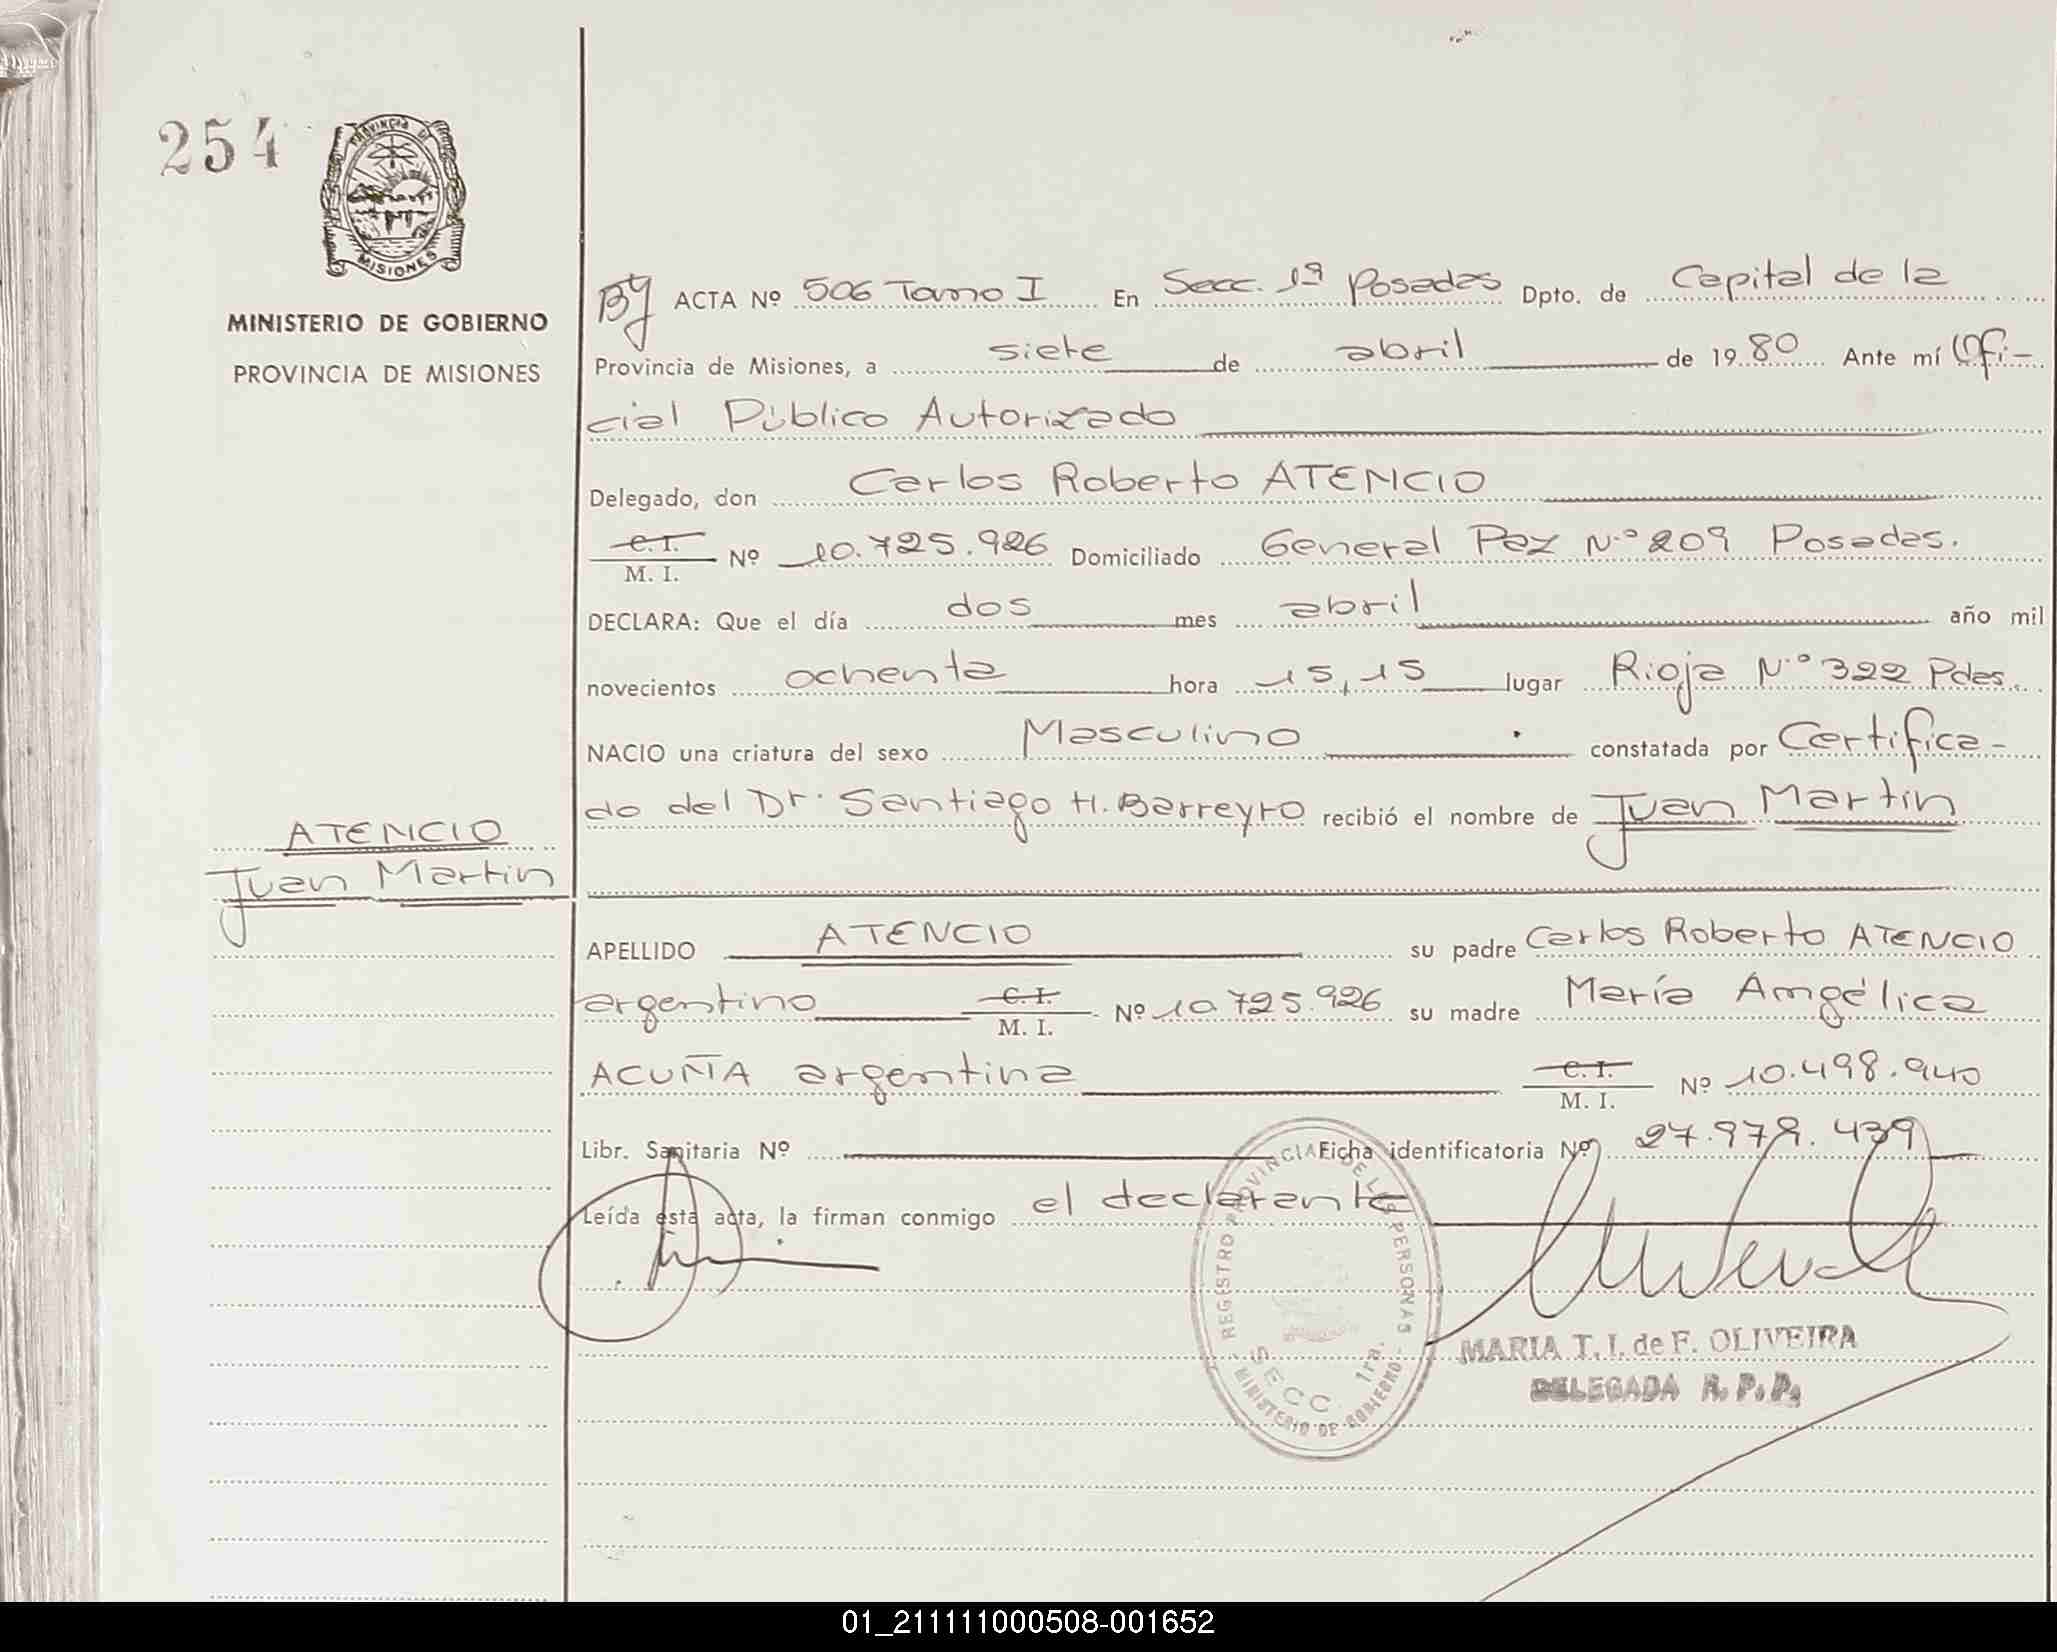 254
PROVINCIA DE
MISIONES
MINISTERIO DE GOBIERNO
PROVINCIA DE MISIONES
ACTA Nº 506 Tomo I En Secc. 1ª Posadas Dpto. de Capital de la
Provincia de Misiones, a siete de abril de 1980 Ante mí Ofi-
cial Público Autorizado
Delegado, don Carlos Roberto ATENCIO
C. I.
M. I. Nº 10.725.926 Domiciliado General Paz N.º 209 Posadas.
DECLARA: Que el día dos mes abril año mil
novecientos ochenta hora 15,15 lugar Rioja N.º 322 Pdas.
NACIO una criatura del sexo Masculino constatada por Certifica-
do del Dr. Santiago H. Barreyro recibió el nombre de Juan Martin
ATENCIO
Juan Martin
APELLIDO ATENCIO su padre Carlos Roberto ATENCIO
argentino C. I. M. I. Nº 10.725.926 su madre María Angélica
ACUÑA argentina C. I. M. I. Nº 10.498.940
Libr. Sanitaria Nº Ficha identificatoria Nº 27.979.439
Leída esta acta, la firman conmigo el declarante
REGISTRO PROVINCIAL DE LAS PERSONAS
SECC. 1ra.
MINISTERIO DE GOBIERNO
MARIA T. I. de F. OLIVEIRA
DELEGADA R. P. P.
01_211111000508-001652